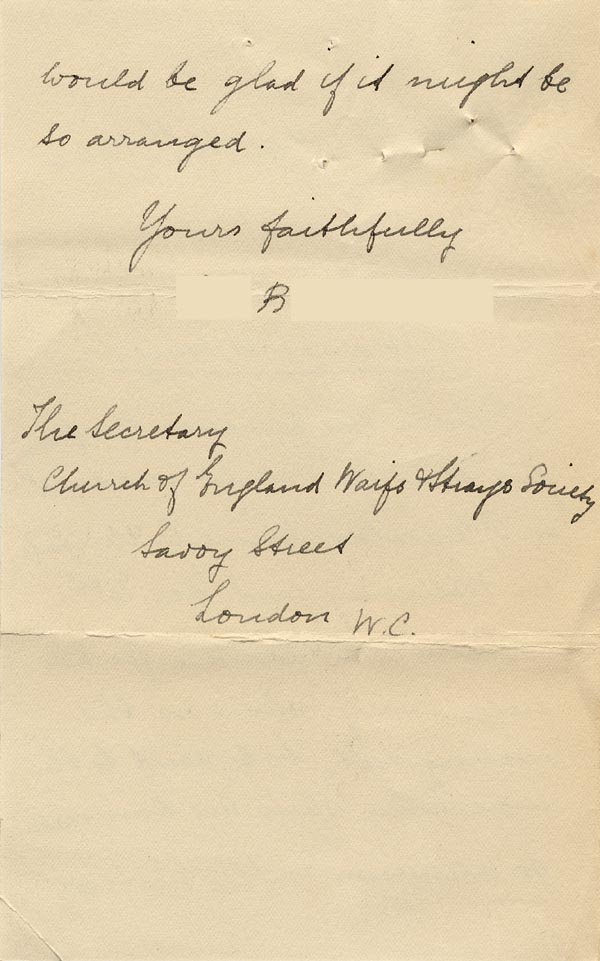 would be glad if it might be
so arranged.
Yours faithfully
B
The Secretary
Church of England Waifs & Strays Society
Savoy Street
London W.C.